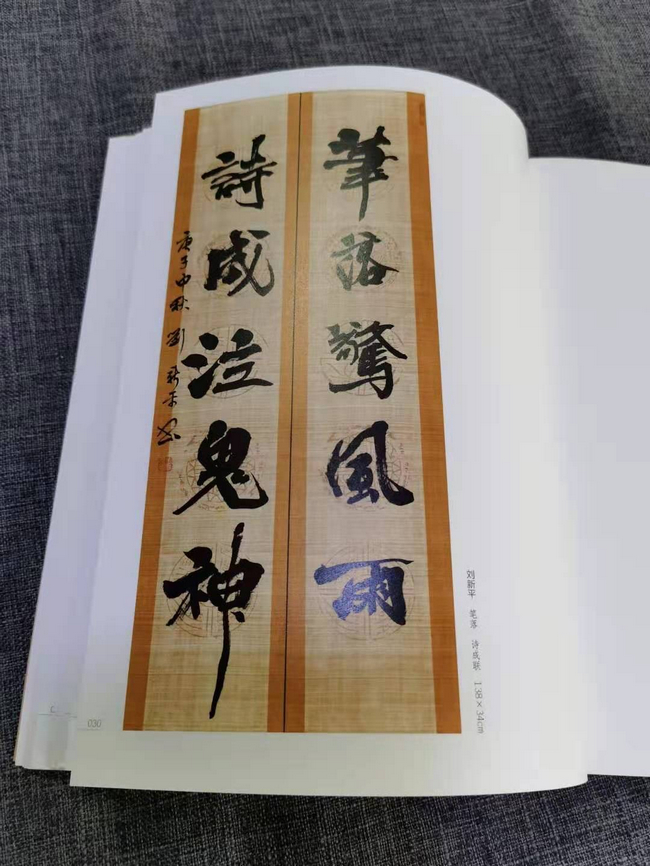 筆落驚風雨
詩成泣鬼神
庚子中秋劉新平書
刘新平 笔落 诗成联 138×34cm
030